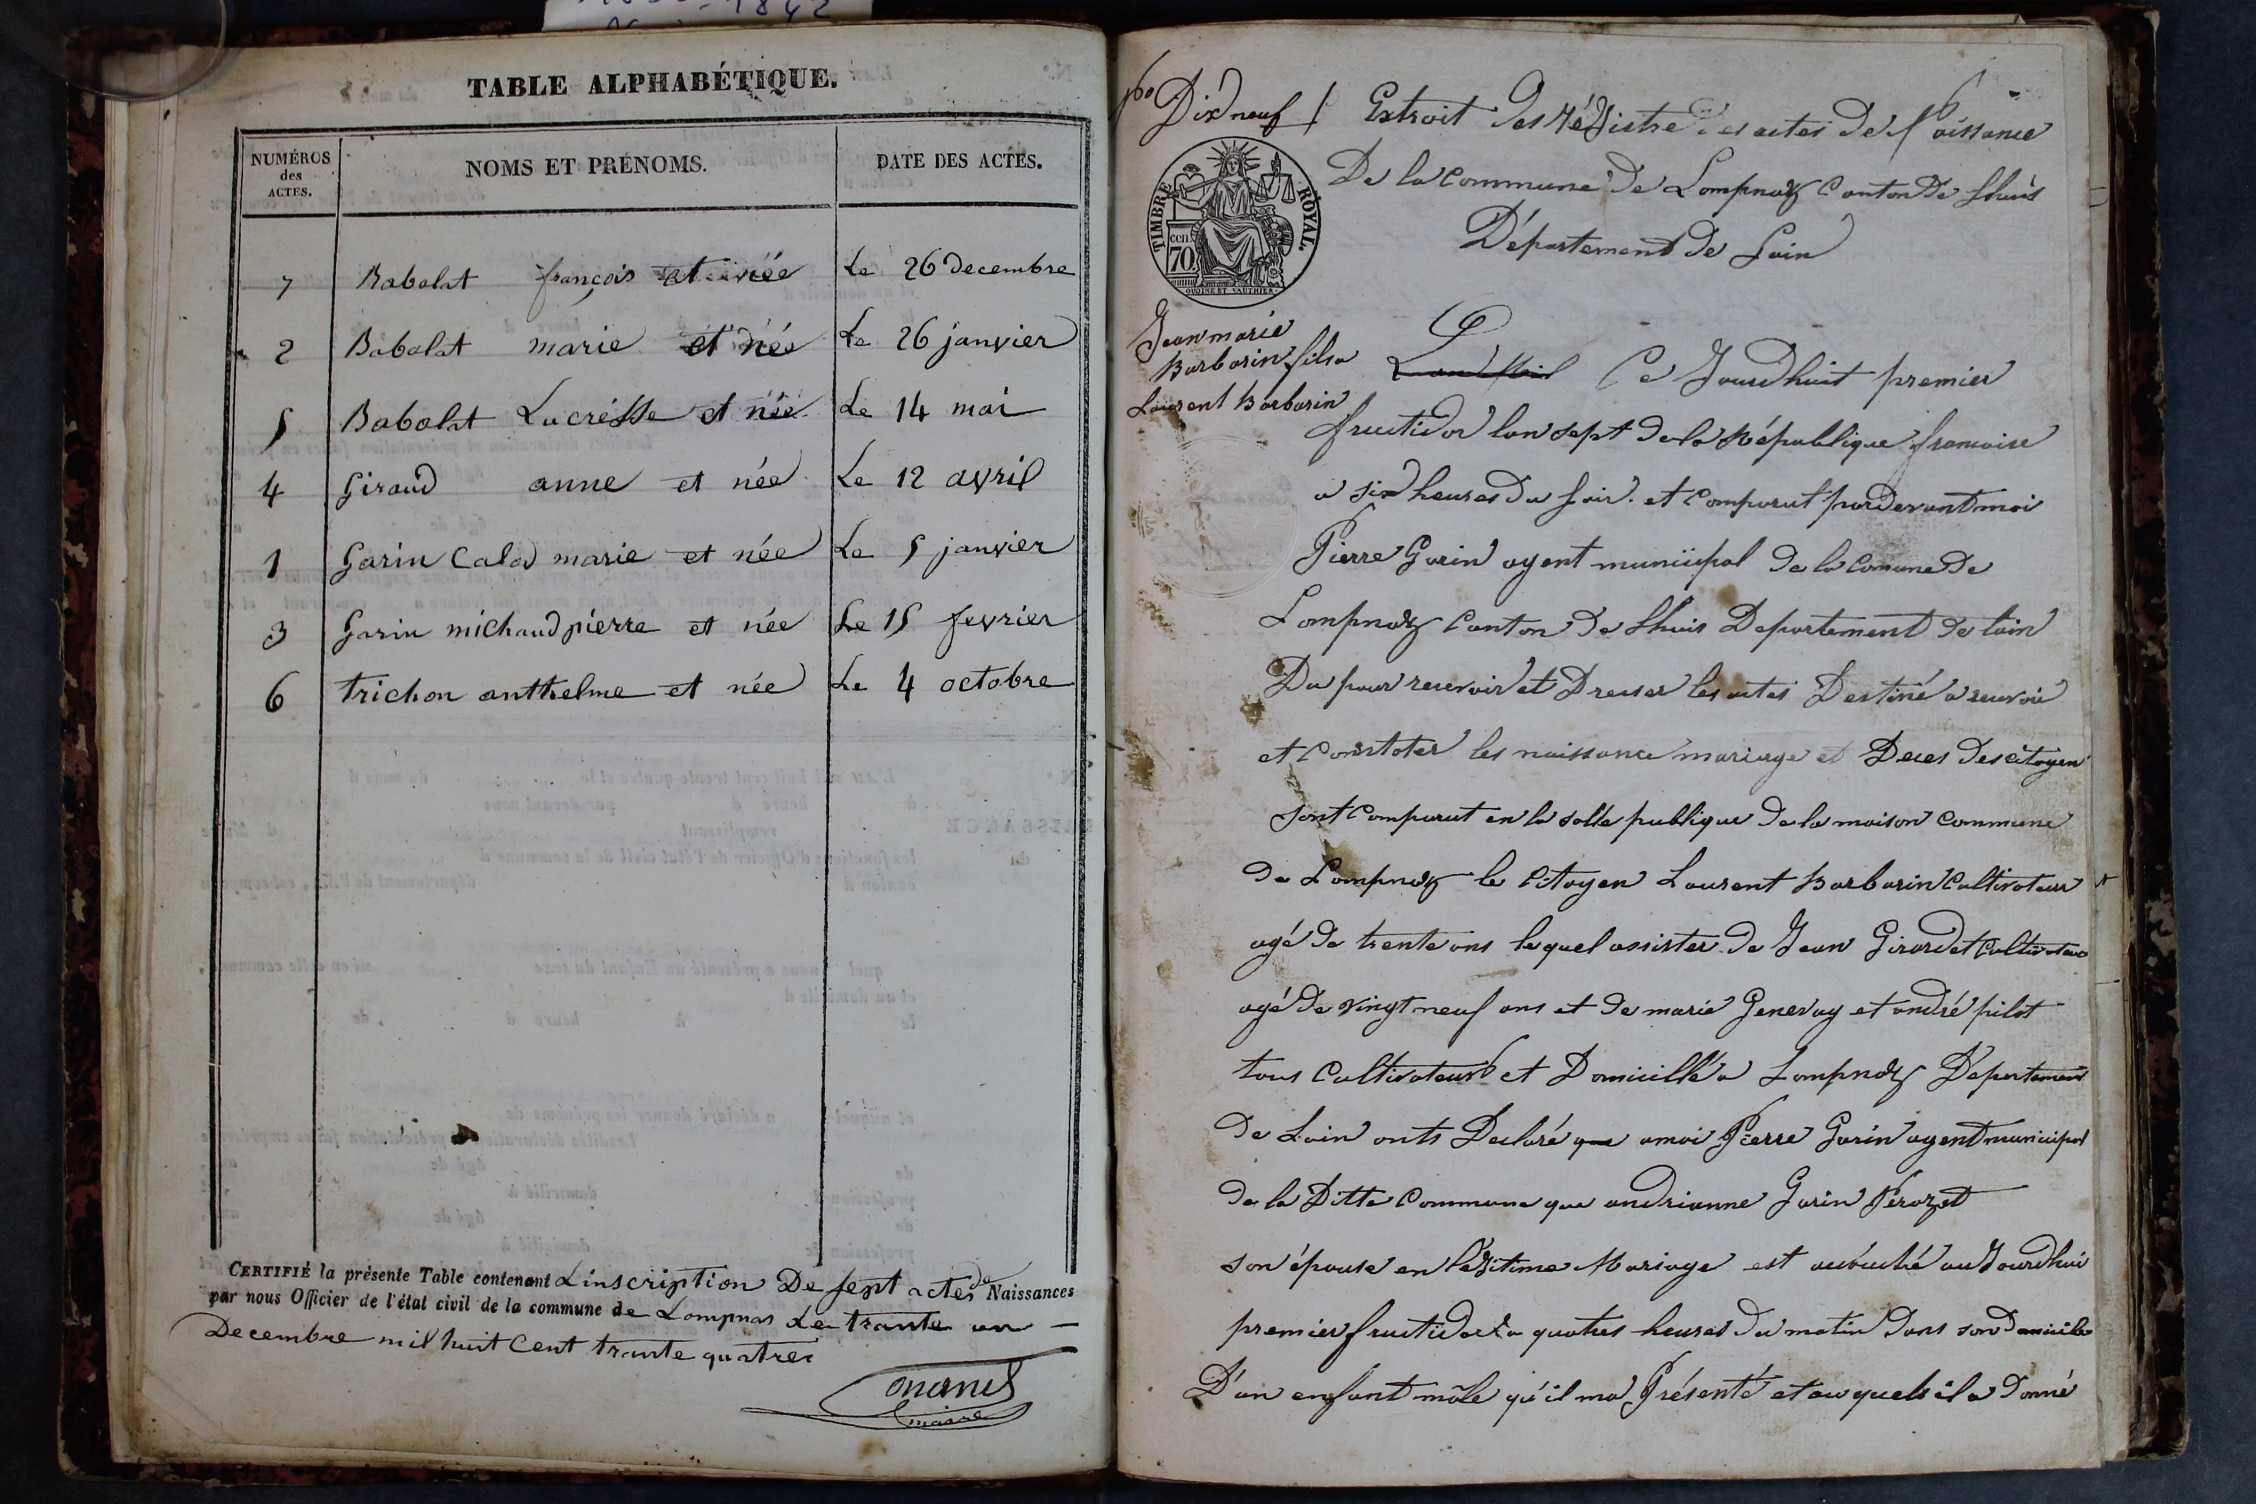 TABLE ALPHABÉTIQUE.
NUMÉROS des ACTES. NOMS ET PRÉNOMS. DATE DES ACTES.
7 Babolat françois et née Le 26 decembre
2 Babolat marie et née Le 26 janvier
5 Babolat Lucrésse et née Le 14 mai
4 Giraud anne et née Le 12 avril
1 Garin Calod marie et née Le 5 janvier
3 Garin michaud pierre et née Le 15 fevrier
6 trichon anthelme et née Le 4 octobre
CERTIFIÉ la présente Table contenant Linscription De sept actes de Naissances
par nous Officier de l'état civil de la commune de Lompnas Le trante un
Decembre mil huit Cent trante quatre
maire
Dix neuf
Extrait des Régistre des actes de Naissance
De la Commune de Lompnaz Canton De Lhuis
Département de Lain
TIMBRE ROYAL.
cen. 70
Jean marie
Barbarin fils a
Laurent Barbarin
Ce Jourdhuit premier
fructidor lan sept de la République francaise
a six heures Du soir. et Comparut pardevant moi
Pierre Garin agent municipal de la Comune de
Lompnaz Canton De Lhuis Departement de lain
Du pour recevoir et Dresser les actes Destiné a recevoir
et Constater les naissance mariage et Deces Des citoyen
sont Comparut en la salle publique de la maison Commune
de Lompnaz le Citoyen Laurent Barbarin Cultivateur
agé de trente ans lequel assister de Jean Girardet Cultivateur
agé de vingt neuf ans et de marie Genevay et andré pilot
tous Cultivateurs et Domicillé a Lompnaz Département
de Lain onts Declaré que amoi Pierre Garin agent municipal
de la Ditte Commune que andrianne Garin Pérozet
son épouse en légitime Mariage est accouché au Jourdhui
premier fructidor a quatres heures du matin Dans son Domicile
D'un enfant mâle qu'il ma Présenté et au quels il a Donné